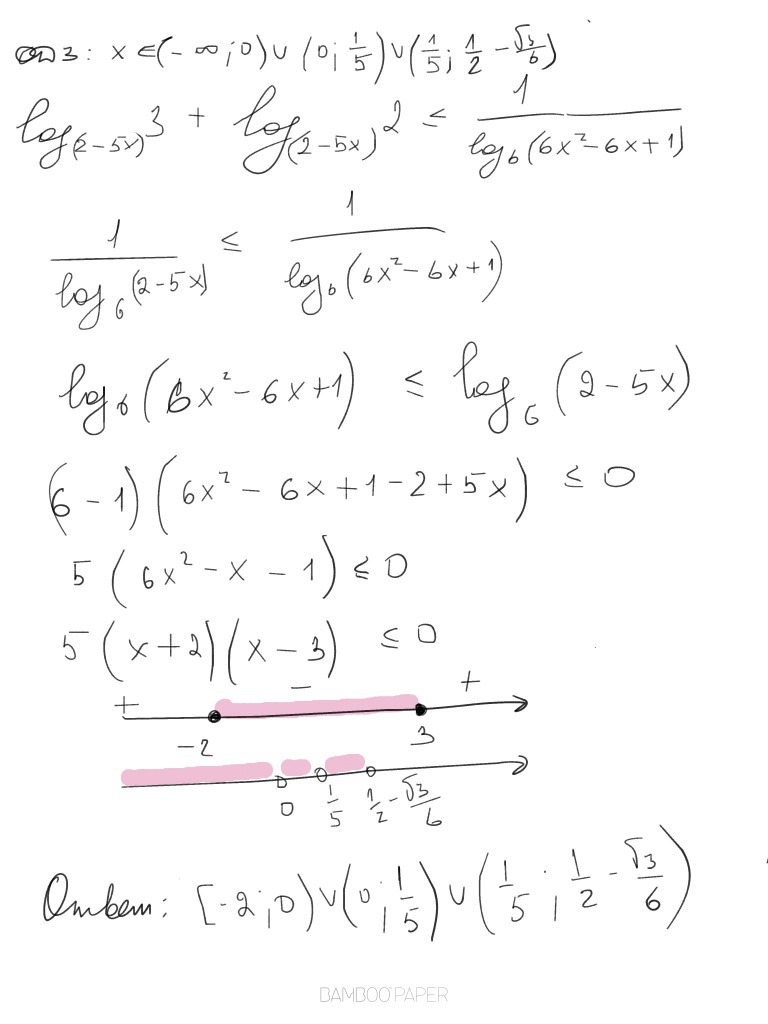 ОДЗ: x ∈ (-∞; 0) ∪ (0; 1/5) ∪ (1/5; 1/2 - √3/6)
log_(2-5x) 3 + log_(2-5x) 2 ≤ 1/log_6 (6x² - 6x + 1)
1/log_6 (2-5x) ≤ 1/log_6 (6x² - 6x + 1)
log_6 (6x² - 6x + 1) ≤ log_6 (2 - 5x)
(6 - 1)(6x² - 6x + 1 - 2 + 5x) ≤ 0
5 (6x² - x - 1) ≤ 0
5 (x + 2)(x - 3) ≤ 0
+ - +
-2 3
0 1/5 1/2 - √3/6
Ответ: [-2; 0) ∪ (0; 1/5) ∪ (1/5; 1/2 - √3/6)
BAMBOO PAPER